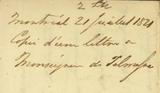 Montréal 21 juillet 1821
Copie d'une lettre a
Monseigneur de